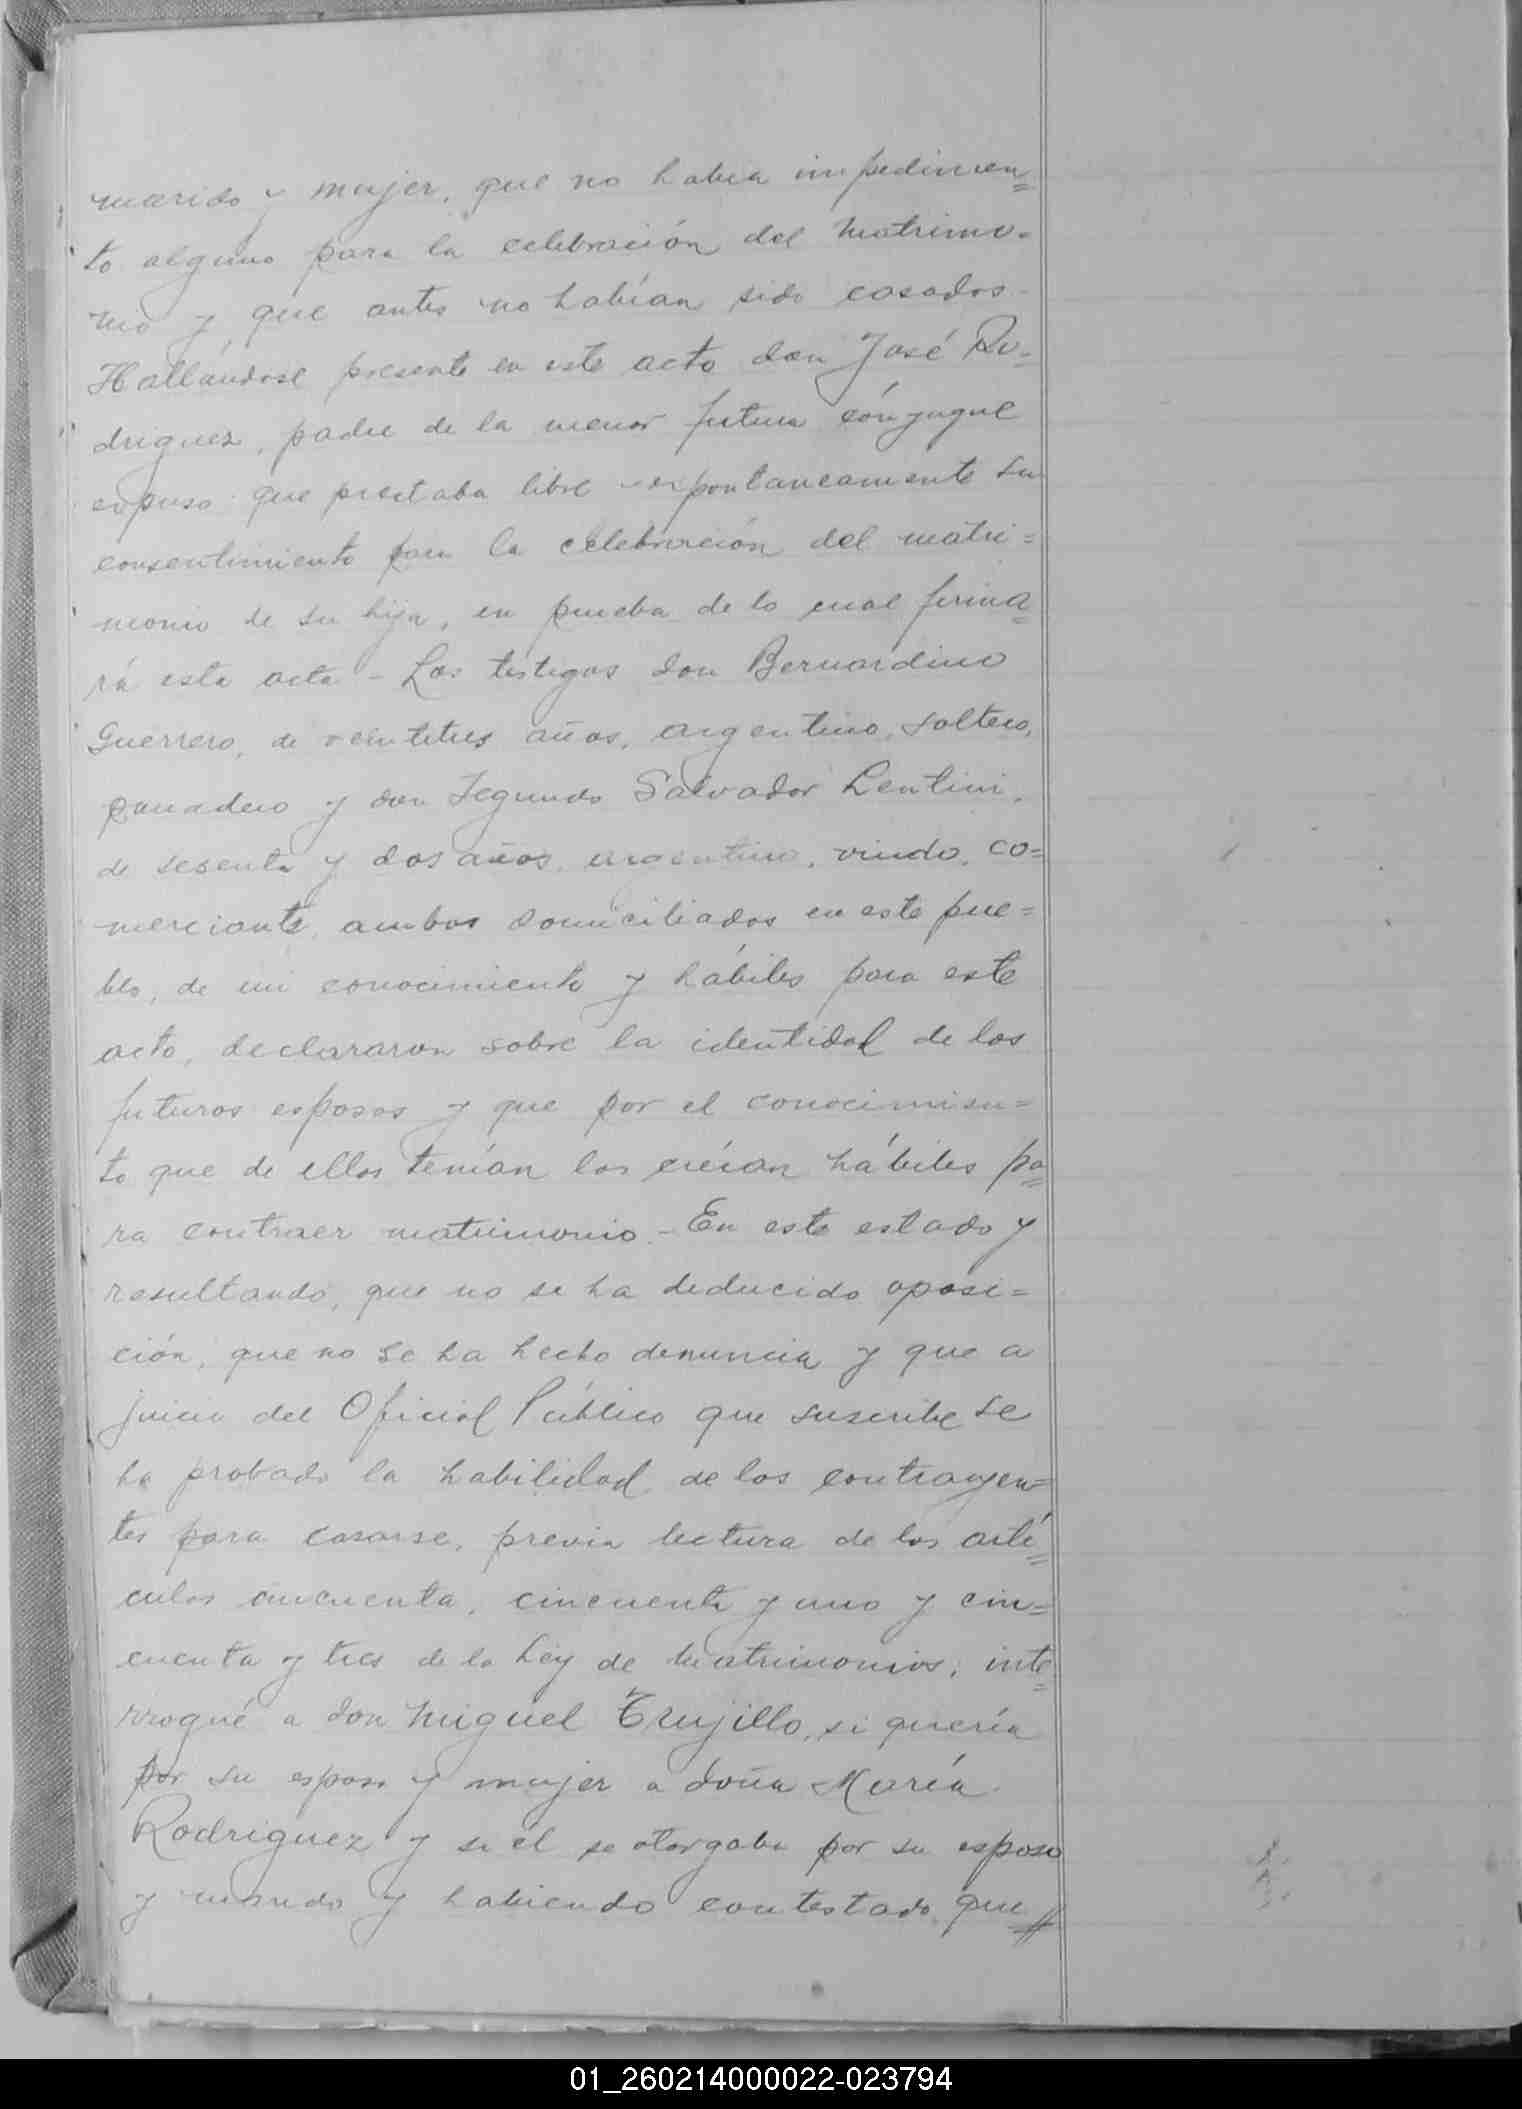 marido y mujer, que no habia impedimen=
to alguno para la celebración del matrimo=
nio y que antes no habían sido casados-
Hallándose presente en este acto don José Ro=
driguez, padre de la menor futura cónyugue
expuso que prestaba libre y espontaneamente su
consentimiento para la celebración del matri=
monio de su hija, en prueba de lo cual firma=
rá esta acta - Los testigos don Bernardino
Guerrero, de veintitres años, argentino, soltero,
panadero y don Segundo Salvador Lentini,
de sesenta y dos años, argentino, viudo, co=
merciante, ambos domiciliados en este pue=
blo, de mi conocimiento y hábiles para este
acto, declararon sobre la identidad de los
futuros esposos y que por el conocimien=
to que de ellos tenían los creían hábiles pa=
ra contraer matrimonio.- En este estado y
resultando, que no se ha deducido oposi=
ción, que no se ha hecho denuncia y que a
juicio del Oficial Público que suscribe se
ha probado la habilidad de los contrayen=
tes para casarse, previa lectura de los artí=
culos cincuenta, cincuenta y uno y cin=
cuenta y tres de la Ley de Matrimonios, inte=
rrogué a don Miguel Trujillo, si quería
por su esposa y mujer a doña María
Rodriguez y si él se otorgaba por su esposo
y marido y habiendo contestado que //
01_260214000022-023794